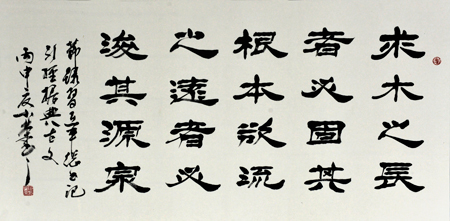 求木之長
者必固其
根本欲流
之遠者必
浚其源泉
節錄習近平總書記
引經據典古文
丙申夏